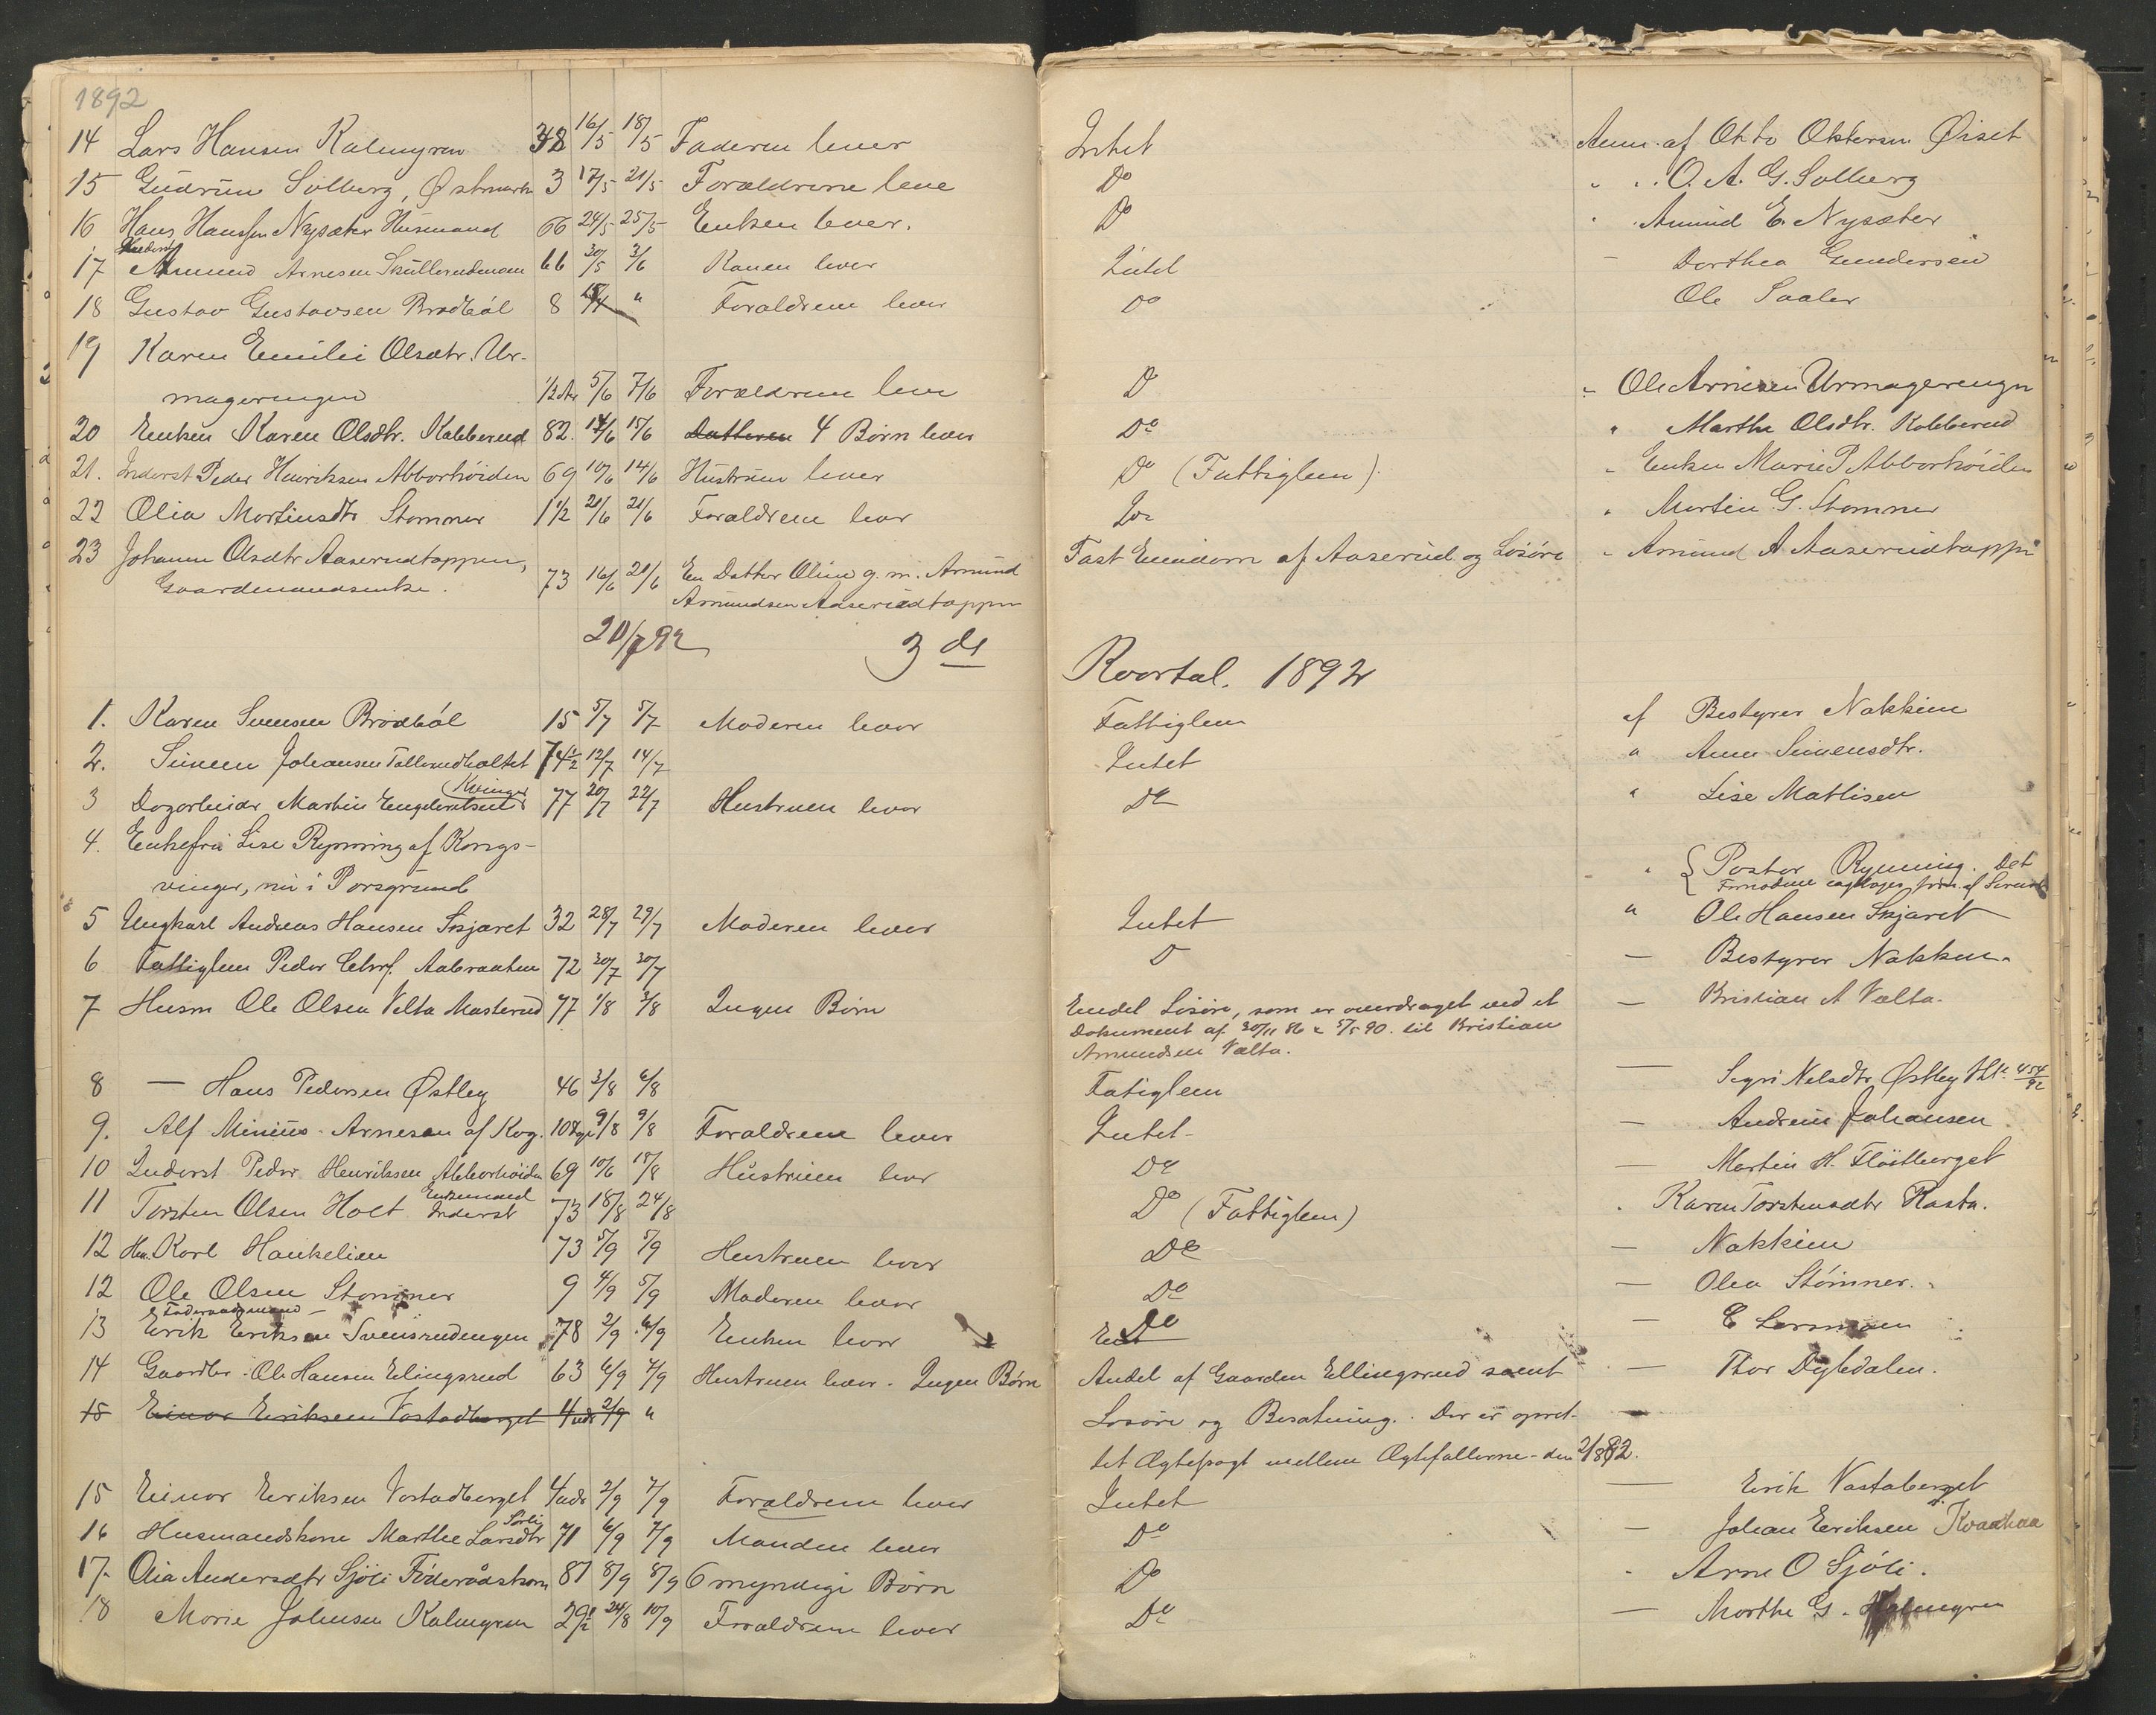 1892
14 Lars Hansen Kalmyren 38 16/5 18/5 Faderen lever Intet Anm. af Okto Oktersen Øiset
15 Gudrun Solberg, Østmark 3 17/5 21/5 Forældrene leve Do " " O. A. G. Solberg
16 Hans Hanssen Nysæter Husmand 66 24/5 25/5 Enken lever. Do " Amund E. Nysæter
17 Amund Arnesen Skullerudmoen 66 30/5 3/6 Konen lever Intet — Dorthea Gundersen
18 Gustav Gustavsen Brødbøl 8 " Forældrene lever Do Ole Saaler
19 Karen Emilie Olsdtr. Ur-
magerengen 1/2 Ar 5/6 7/6 Forældrene leve D " Ole Arnesen Urmagerengen
20 Enken Karen Olsdtr. Kobberud 82. 14/6 15/6 Datteren 4 Børn lever Do " Marthe Olsdtr. Kobberud
21. Inderst Peder Henriksen Abborhøiden 69 10/6 14/6 Hustruen lever Do (Fattiglem). " Enken Marie P Abborhøiden
22 Olia Martinsdtr Stommer 1 1/2 20/6 21/6 Forældrene lever Do " Martin G. Stommer
23 Johanne Olsdtr Aaserudtoppen,
Gaardmandsenke. 73 16/6 21/6 En Datter Oline g. m. Amund Fast Eiendom af Aaserud og Løsøre " Amund A Aaserudtoppen
Amundsen Aaserudtoppen
20/7 92 3 de Kvartal. 1892
1. Karen Svensen Brødbøl 15 5/7 5/7 Moderen lever Fattiglem af Bestyrer Nakkim
2. Simen Johansen Tallerudholtet 74 1/2 12/7 14/7 Intet " Anne Simensdtr.
Kvinger
3 Dagarbeider Martin Engebretsen 77 20/7 22/7 Hustruen lever Do " Lise Mathisen
4. Enkefru Lise Rynning af Kongs-
vinger, nu i Porsgrund " { Pastor Rynning. Det
5 Ungkarl Andreas Hansen Skjæret 32 28/7 29/7 Moderen lever Intet " Ole Hansen Skjæret
6 Fattiglem Peder Chrf. Aabraaten 72 30/7 30/7 D — Bestyrer Nakkim
7 Husm Ole Olsen Velta Masterud 77 1/8 3/8 Ingen Børn Endel Løsøre, som er overdraget ved et — Kristian A Velta.
Dokument af 30/11 86 & 5/5 90. til Kristian
Amundsen Velta.
8 — Hans Pedersen Østby 46 3/8 6/8 Fatiglem — Sigri Nelsdtr Østby
9. Alf Minius Arnesen af Kvg. 10 Dge 9/8 9/8 Forældrene lever Intet — Andreas Johansen
10 Inderst Peder Henriksen Abborhøiden 69 10/6 18/8 Hustruen lever Do — Martin H. Fløitberget
Enkemand
11 Torsten Olsen Holt Inderst 73 18/8 24/8 Do (Fattiglem) " Karen Torstensdtr Rasta.
12 Hm. Karl Hankelien 73 5/9 5/9 Hustruen lever Do — Nakkim
12 Ole Olsen Stommer 9 4/9 5/9 Moderen lever Do — Olea Stømner.
Føderaadsmand
13 Erik Eriksen Svensrudengen 78 2/9 6/9 Enken lever Do — E Larsmoen
14 Gaardbr. Ole Hansen Elingsrud 63 6/9 7/9 Hustruen lever. Ingen Børn Andel af Gaarden Ellingsrud samt — Thor Dybdalen.
15 Einar Eriksen Vastadberget 4 udr 2/9 " Løsøre og Besætning. Der er opret- —
tet Ægtepagt mellem Ægtefællerne den 2/8 82.
15 Einar Eriksen Vastadberget 4 udr 2/9 7/9 Forældrene lever Intet — Erik Vastaberget
Sørli
16 Husmandskone Marthe Larsdtr 71 6/9 7/9 Manden lever Do — Johan Eriksen Kvaahaa
17. Olia Andersdtr Sjøli Føderådskone 87 8/9 8/9 6 myndige Børn Do " Arne O Sjøli.
18 Marie Johnsen Kalmyren 29 1/2 24/8 10/9 Forældrene lever Do — Marthe G. Kalmyren